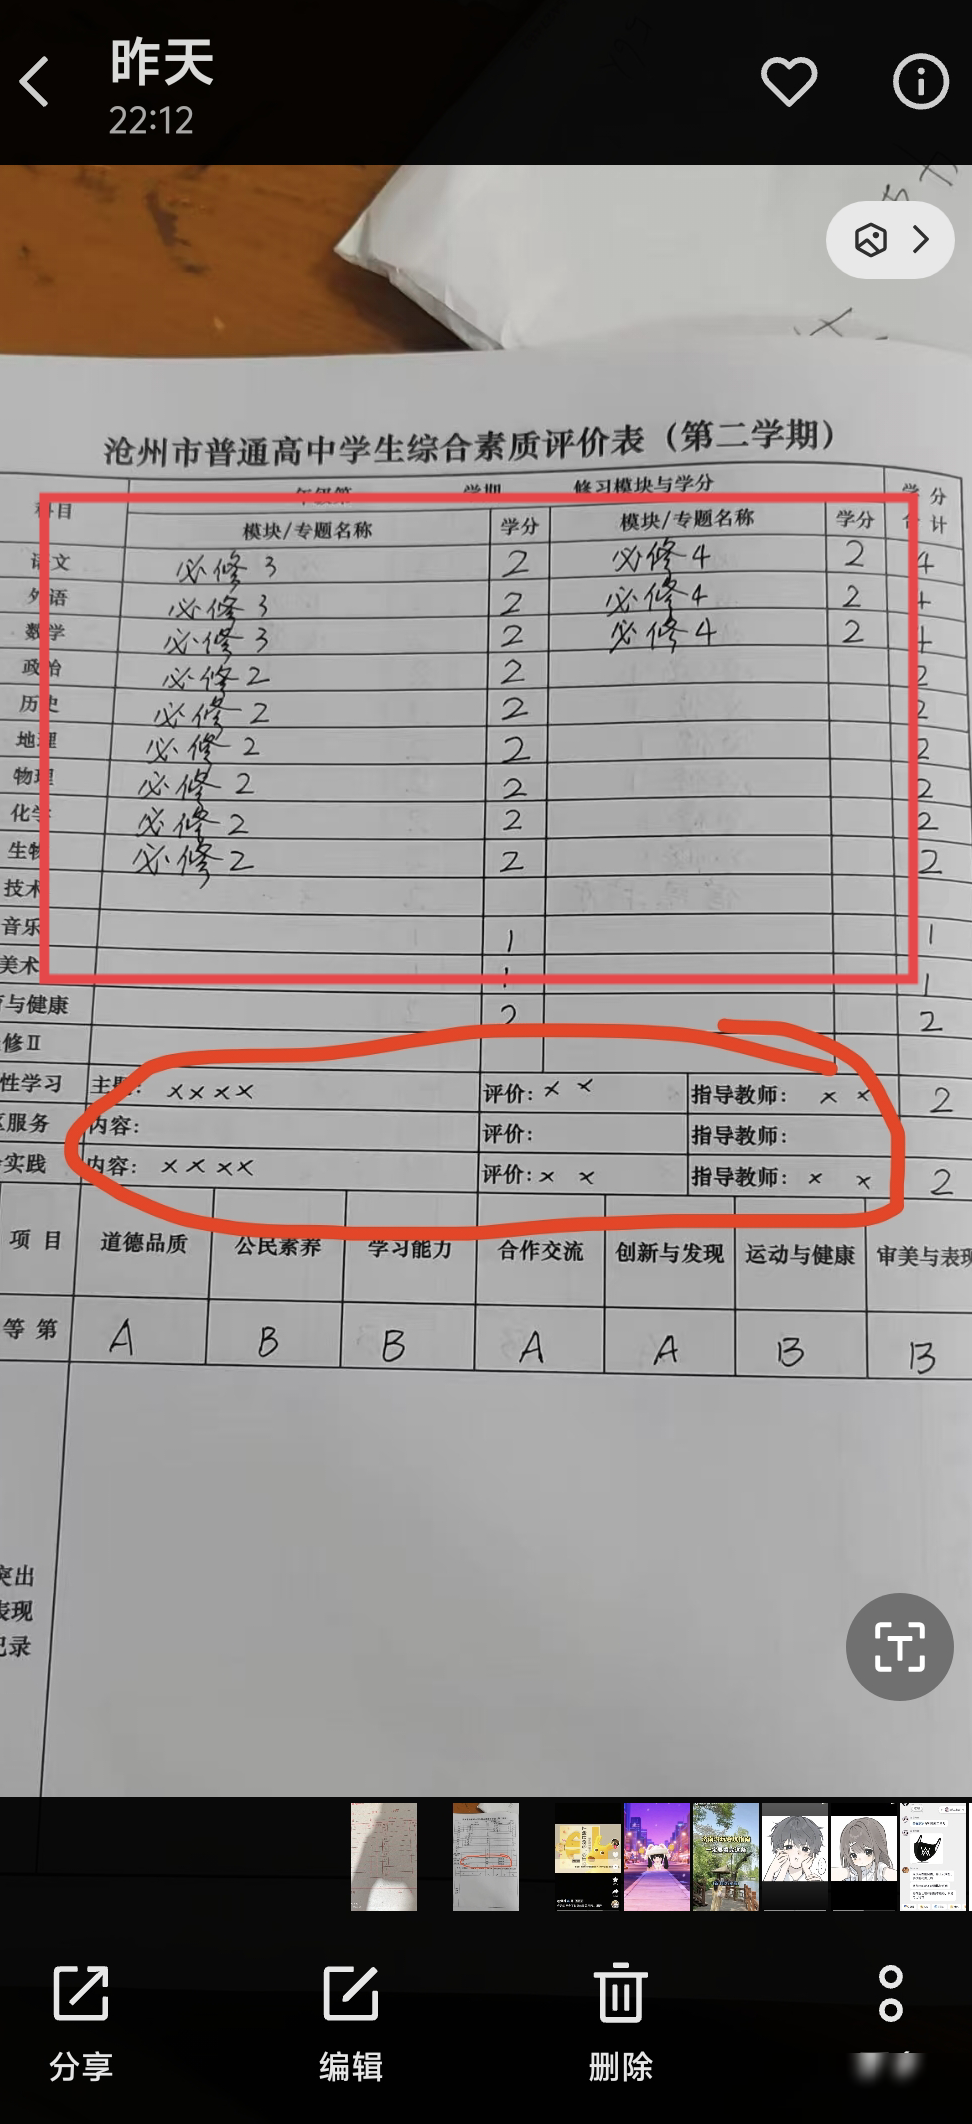 昨天
22:12
沧州市普通高中学生综合素质评价表（第二学期）
科目 年级第 学期 修习模块与学分 学分合计
模块/专题名称 学分 模块/专题名称 学分
语文 必修3 2 必修4 2 4
外语 必修3 2 必修4 2 4
数学 必修3 2 必修4 2 4
政治 必修2 2 2
历史 必修2 2 2
地理 必修2 2 2
物理 必修2 2 2
化学 必修2 2 2
生物 必修2 2 2
技术
音乐 1 1
美术 1 1
与健康 2 2
修Ⅱ
性学习 主题: ×××× 评价: ×× 指导教师: ×× 2
服务 内容: 评价: 指导教师:
实践 内容: ×××× 评价: ×× 指导教师: ×× 2
项目 道德品质 公民素养 学习能力 合作交流 创新与发现 运动与健康 审美与表现
等第 A B B A A B B
突出
表现
记录
分享 编辑 删除